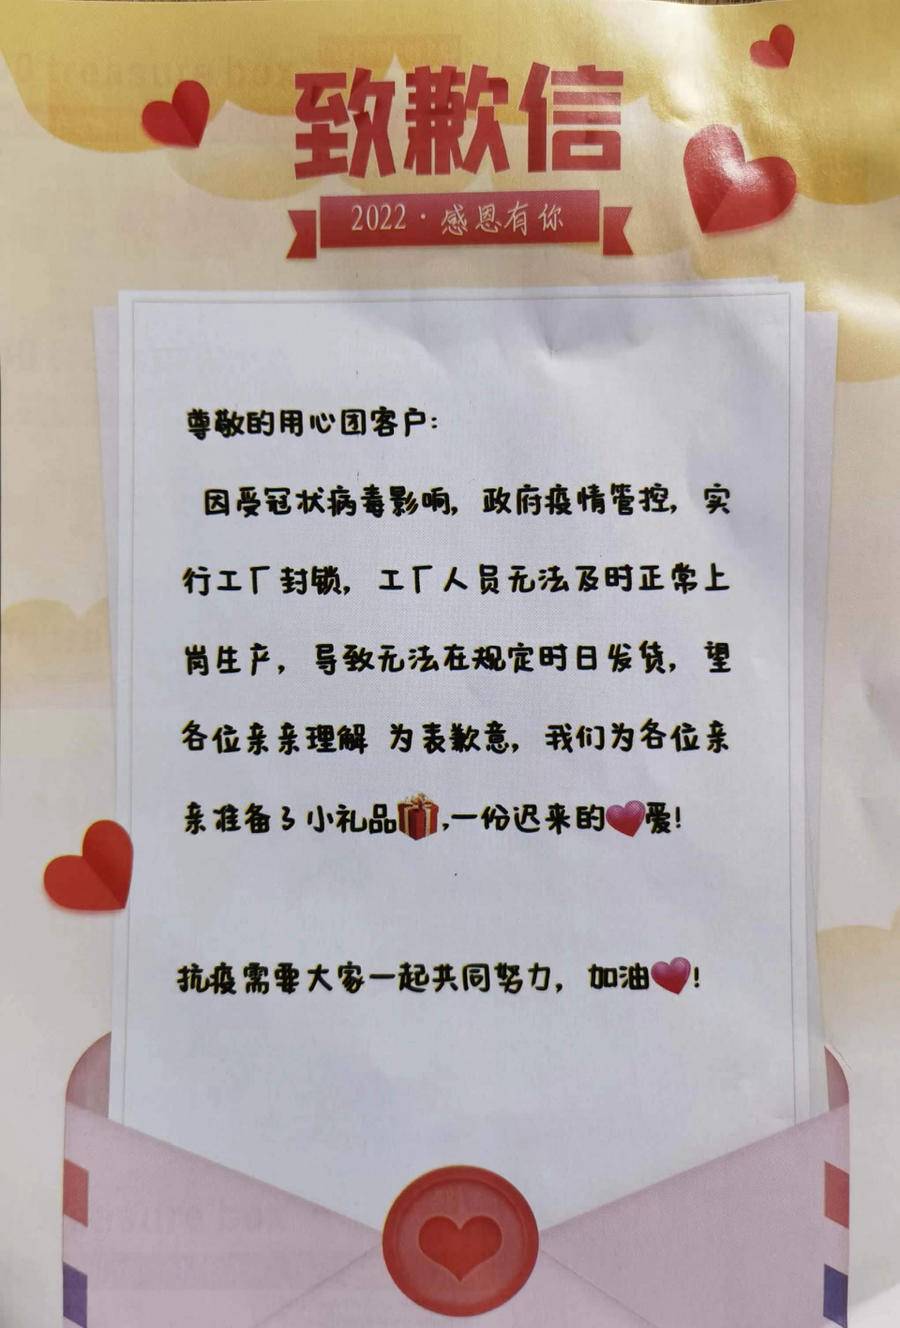 致歉信
2022·感恩有你
尊敬的用心团客户:
因受冠状病毒影响,政府疫情管控,实
行工厂封锁,工厂人员无法及时正常上
岗生产,导致无法在规定时日发货,望
各位亲亲理解 为表歉意,我们为各位亲
亲准备了小礼品🎁,一份迟来的❤爱!
抗疫需要大家一起共同努力,加油❤!